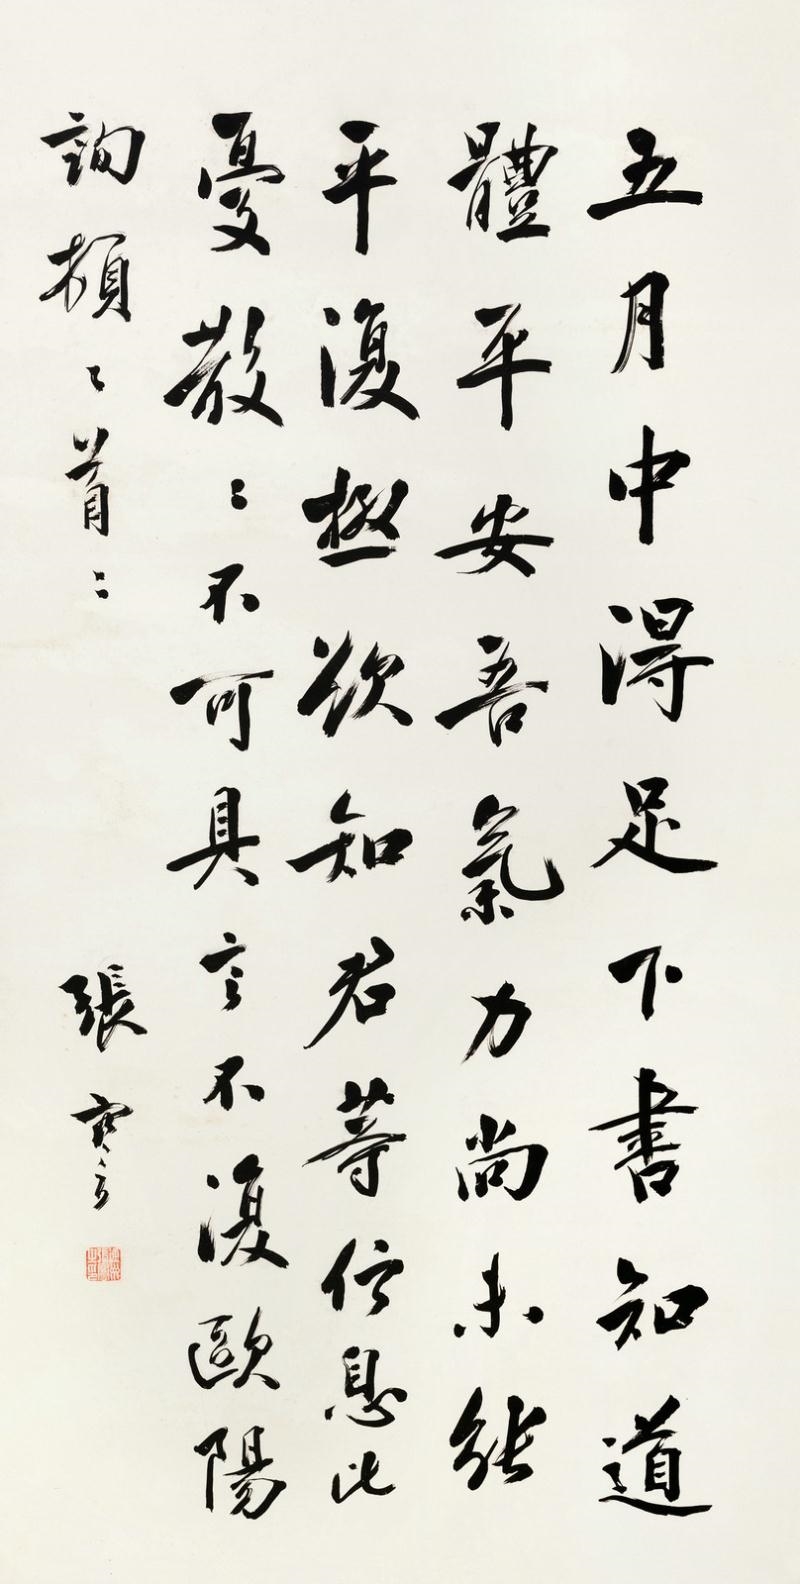 五月中得足下書知道
體平安吾氣力尚未能
平復極欲知君等信息比
憂散〻不可具言不復歐陽
詢頓〻首〻
張